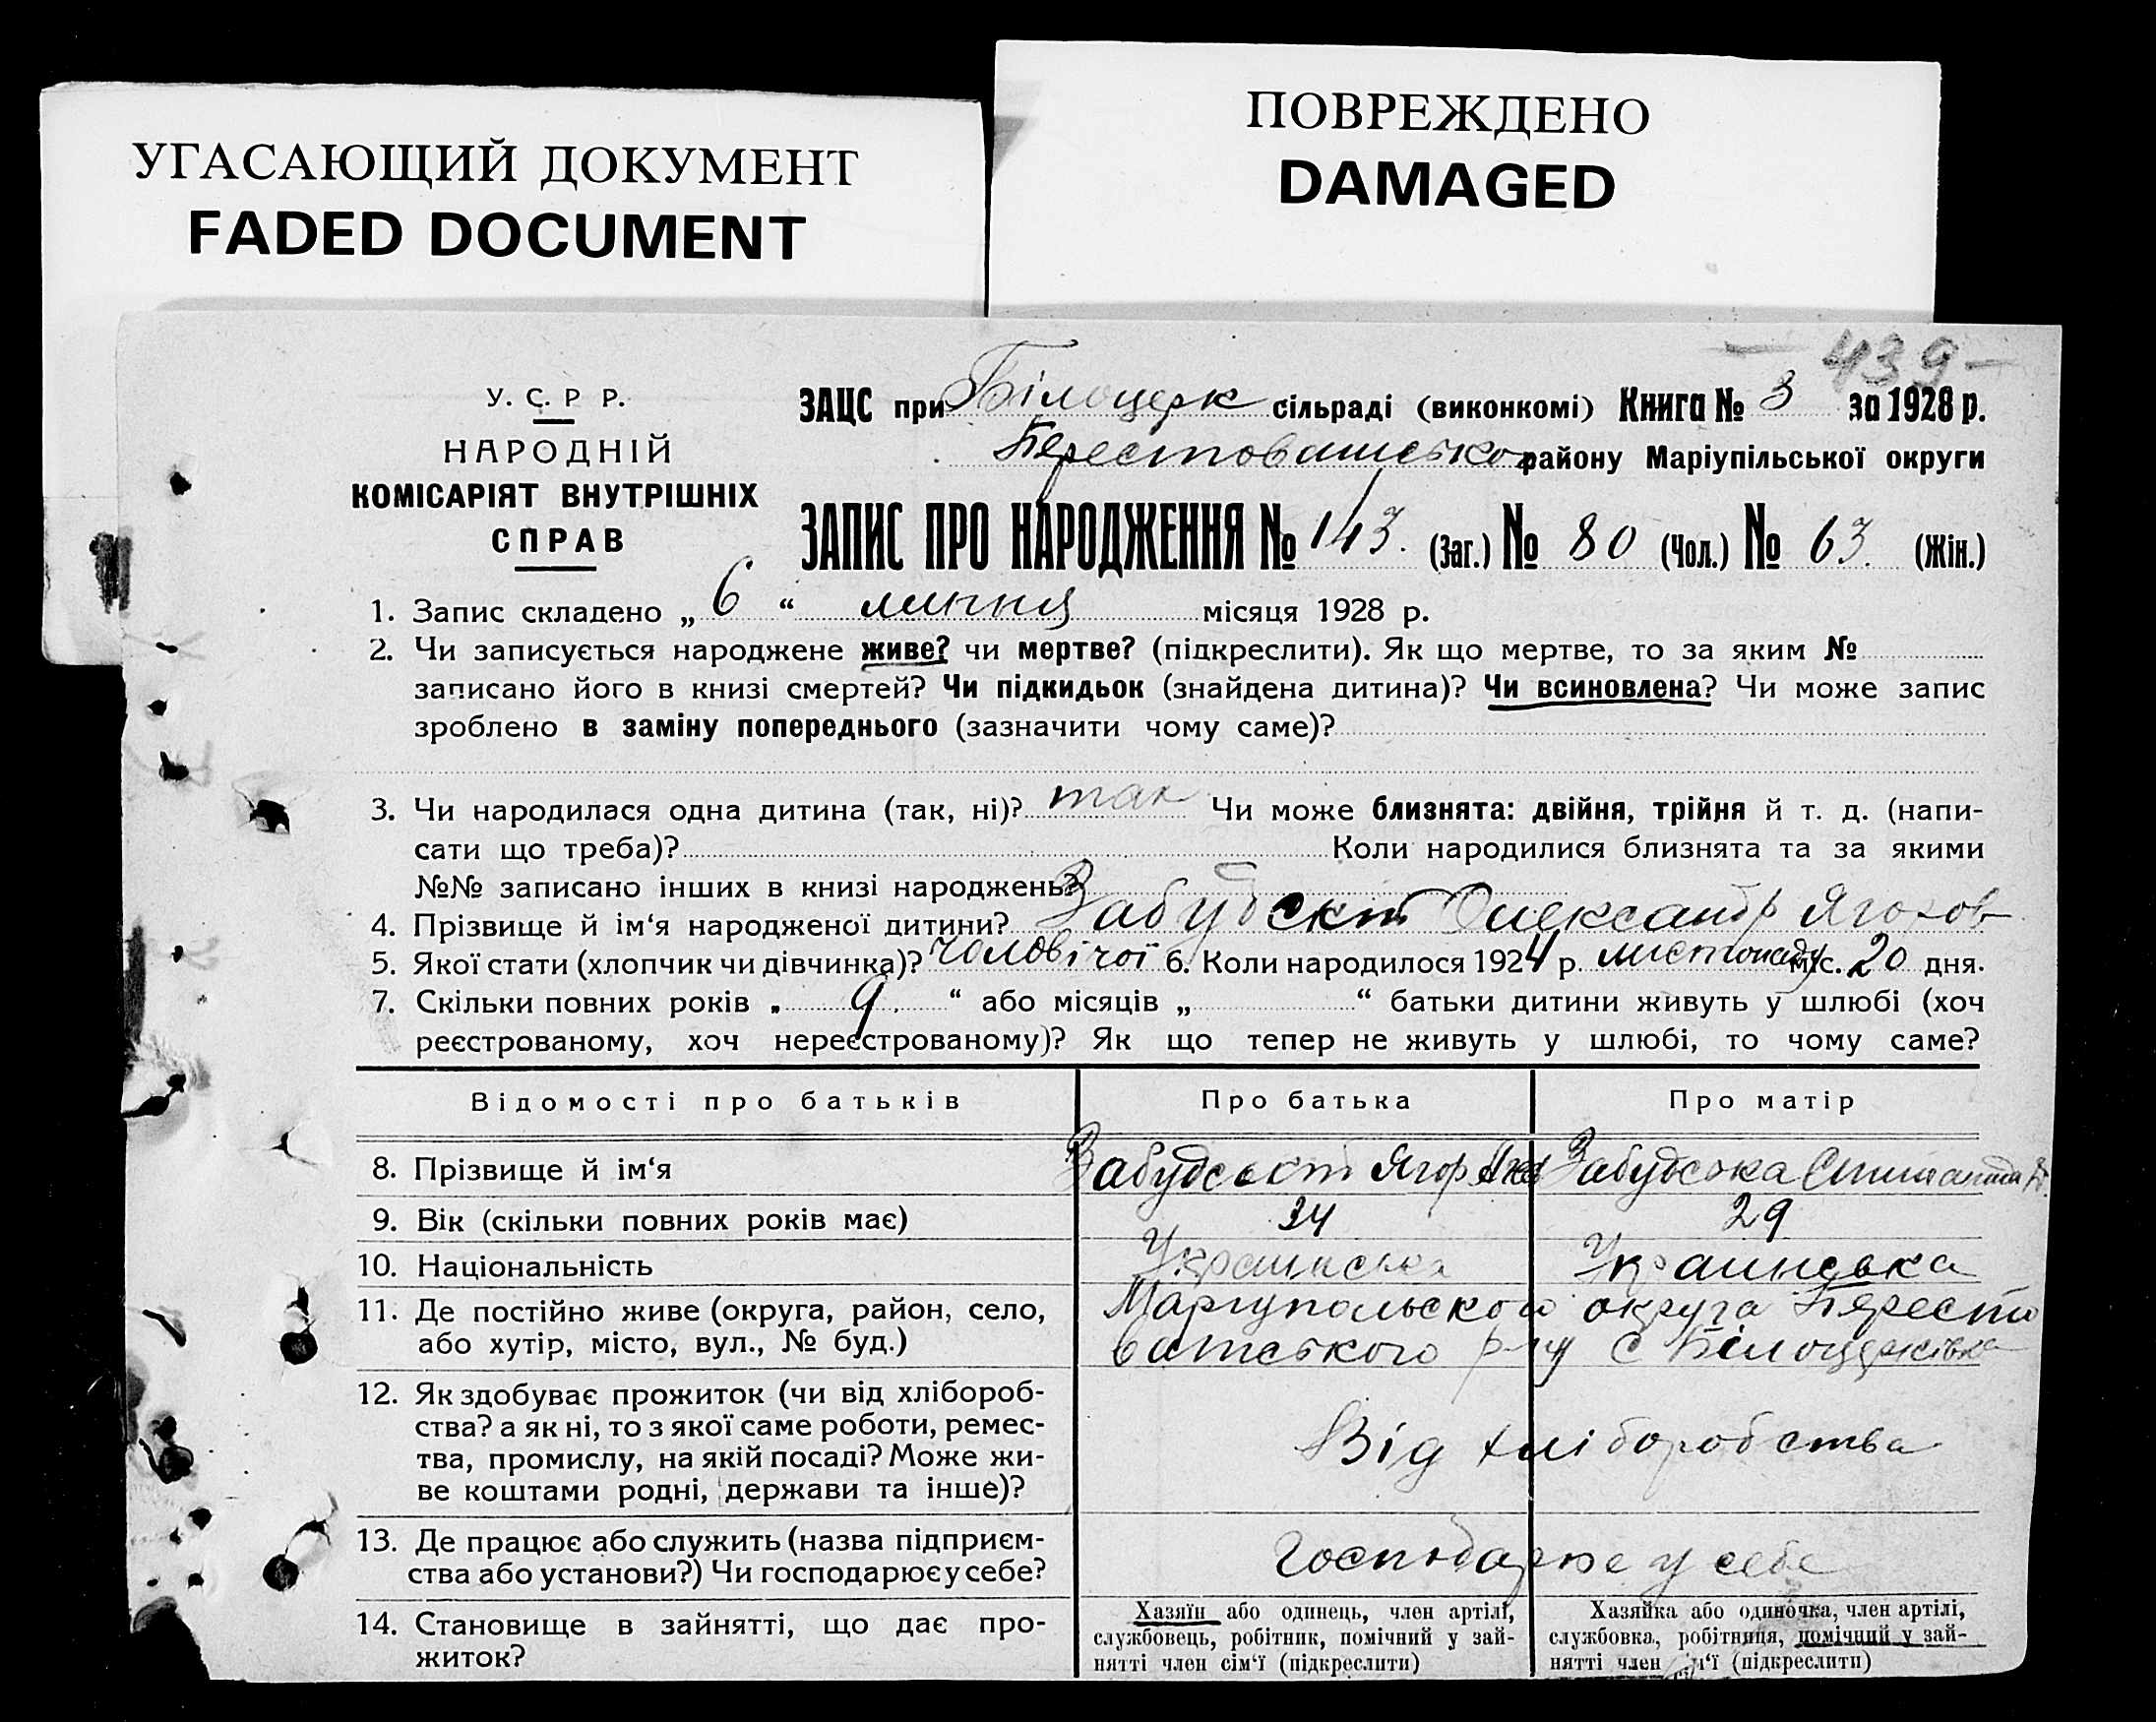 УГАСАЮЩИЙ ДОКУМЕНТ
FADED DOCUMENT
ПОВРЕЖДЕНО
DAMAGED
— 439 —
У. С. Р Р.
НАРОДНІЙ
КОМІСАРІЯТ ВНУТРІШНІХ
СПРАВ
ЗАЦС при Білоцерк сільраді (виконкомі) Книга № 3 за 1928 р.
району Маріупільської округи
ЗАПИС ПРО НАРОДЖЕННЯ № 143. (Заг.) № 80 (Чол.) № 63. (Жін.)
1. Запис складено „ 6 “ липня місяця 1928 р.
2. Чи записується народжене живе? чи мертве? (підкреслити). Як що мертве, то за яким №
записано його в книзі смертей? Чи підкидьок (знайдена дитина)? Чи всиновлена? Чи може запис
зроблено в заміну попереднього (зазначити чому саме)?
3. Чи народилася одна дитина (так, ні)? так Чи може близнята: двійня, трійня й т. д. (напи-
сати що треба)? Коли народилися близнята та за якими
№№ записано інших в книзі народжень?
4. Прізвище й ім‘я народженої дитини? Олександр
5. Якої стати (хлопчик чи дівчинка)? чоловічої 6. Коли народилося 1924 р. листопаду міс. 20 дня.
7. Скільки повних років „ 9 “ або місяців „ “ батьки дитини живуть у шлюбі (хоч
реєстрованому, хоч нереєстрованому)? Як що тепер не живуть у шлюбі, то чому саме?
Відомості про батьків Про батька Про матір
8. Прізвище й ім‘я Ягор Забудська
9. Вік (скільки повних років має) 34 29
10. Національність Украинська Украинська
11. Де постійно живе (округа, район, село, округа
або хутір, місто, вул., № буд.) р-ну с Білоцерківка
12. Як здобуває прожиток (чи від хлібороб-
ства? а як ні, то з якої саме роботи, ремес-
тва, промислу, на якій посаді? Може жи-
ве коштами родні, держави та інше)?
Від хліборобства
13. Де працює або служить (назва підприєм-
ства або установи?) Чи господарює у себе?
Господарює у себе
14. Становище в зайнятті, що дає про-
житок?
Хазяїн або одинець, член артілі,
службовець, робітник, помічний у зай-
нятті член сім‘ї (підкреслити)
Хазяйка або одиночка, член артілі,
службовка, робітниця, помічний у зай-
нятті член сім‘ї (підкреслити)